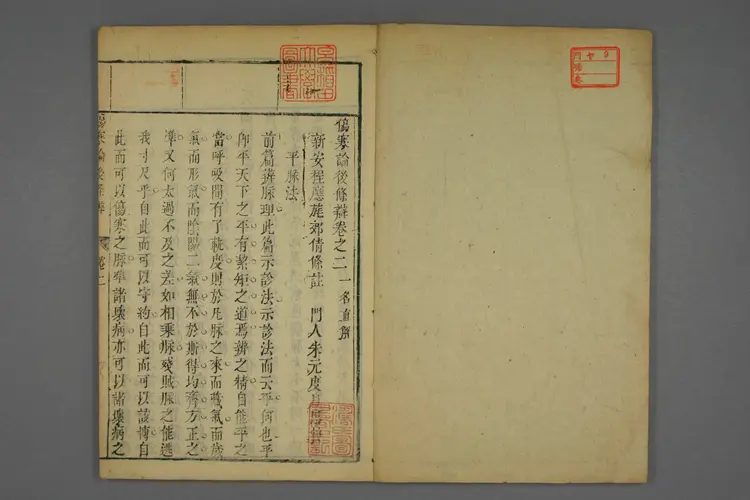 傷寒論後條辨卷之二 一名直解
新安程應旄郊倩條註 門人朱元度
平脉法
前篇辨脉理此篇示診法示診法而云平何也平
即平天下之平有絜矩之道焉辨之精自能平之
當呼吸間有了軌度則於凡脉之來而
氣而形氣而陰陽二氣無不於斯得均齊方正之
準又何太過不及之差如相乘脉殘賊脉之能逃
我寸尺乎自此而可以守約自此而可以該博自
此而可以傷寒之脉率諸襍病亦可以諸襍病之
傷寒論後條辨 卷二
早稻田大學圖書
門 ヤ 9
號
卷